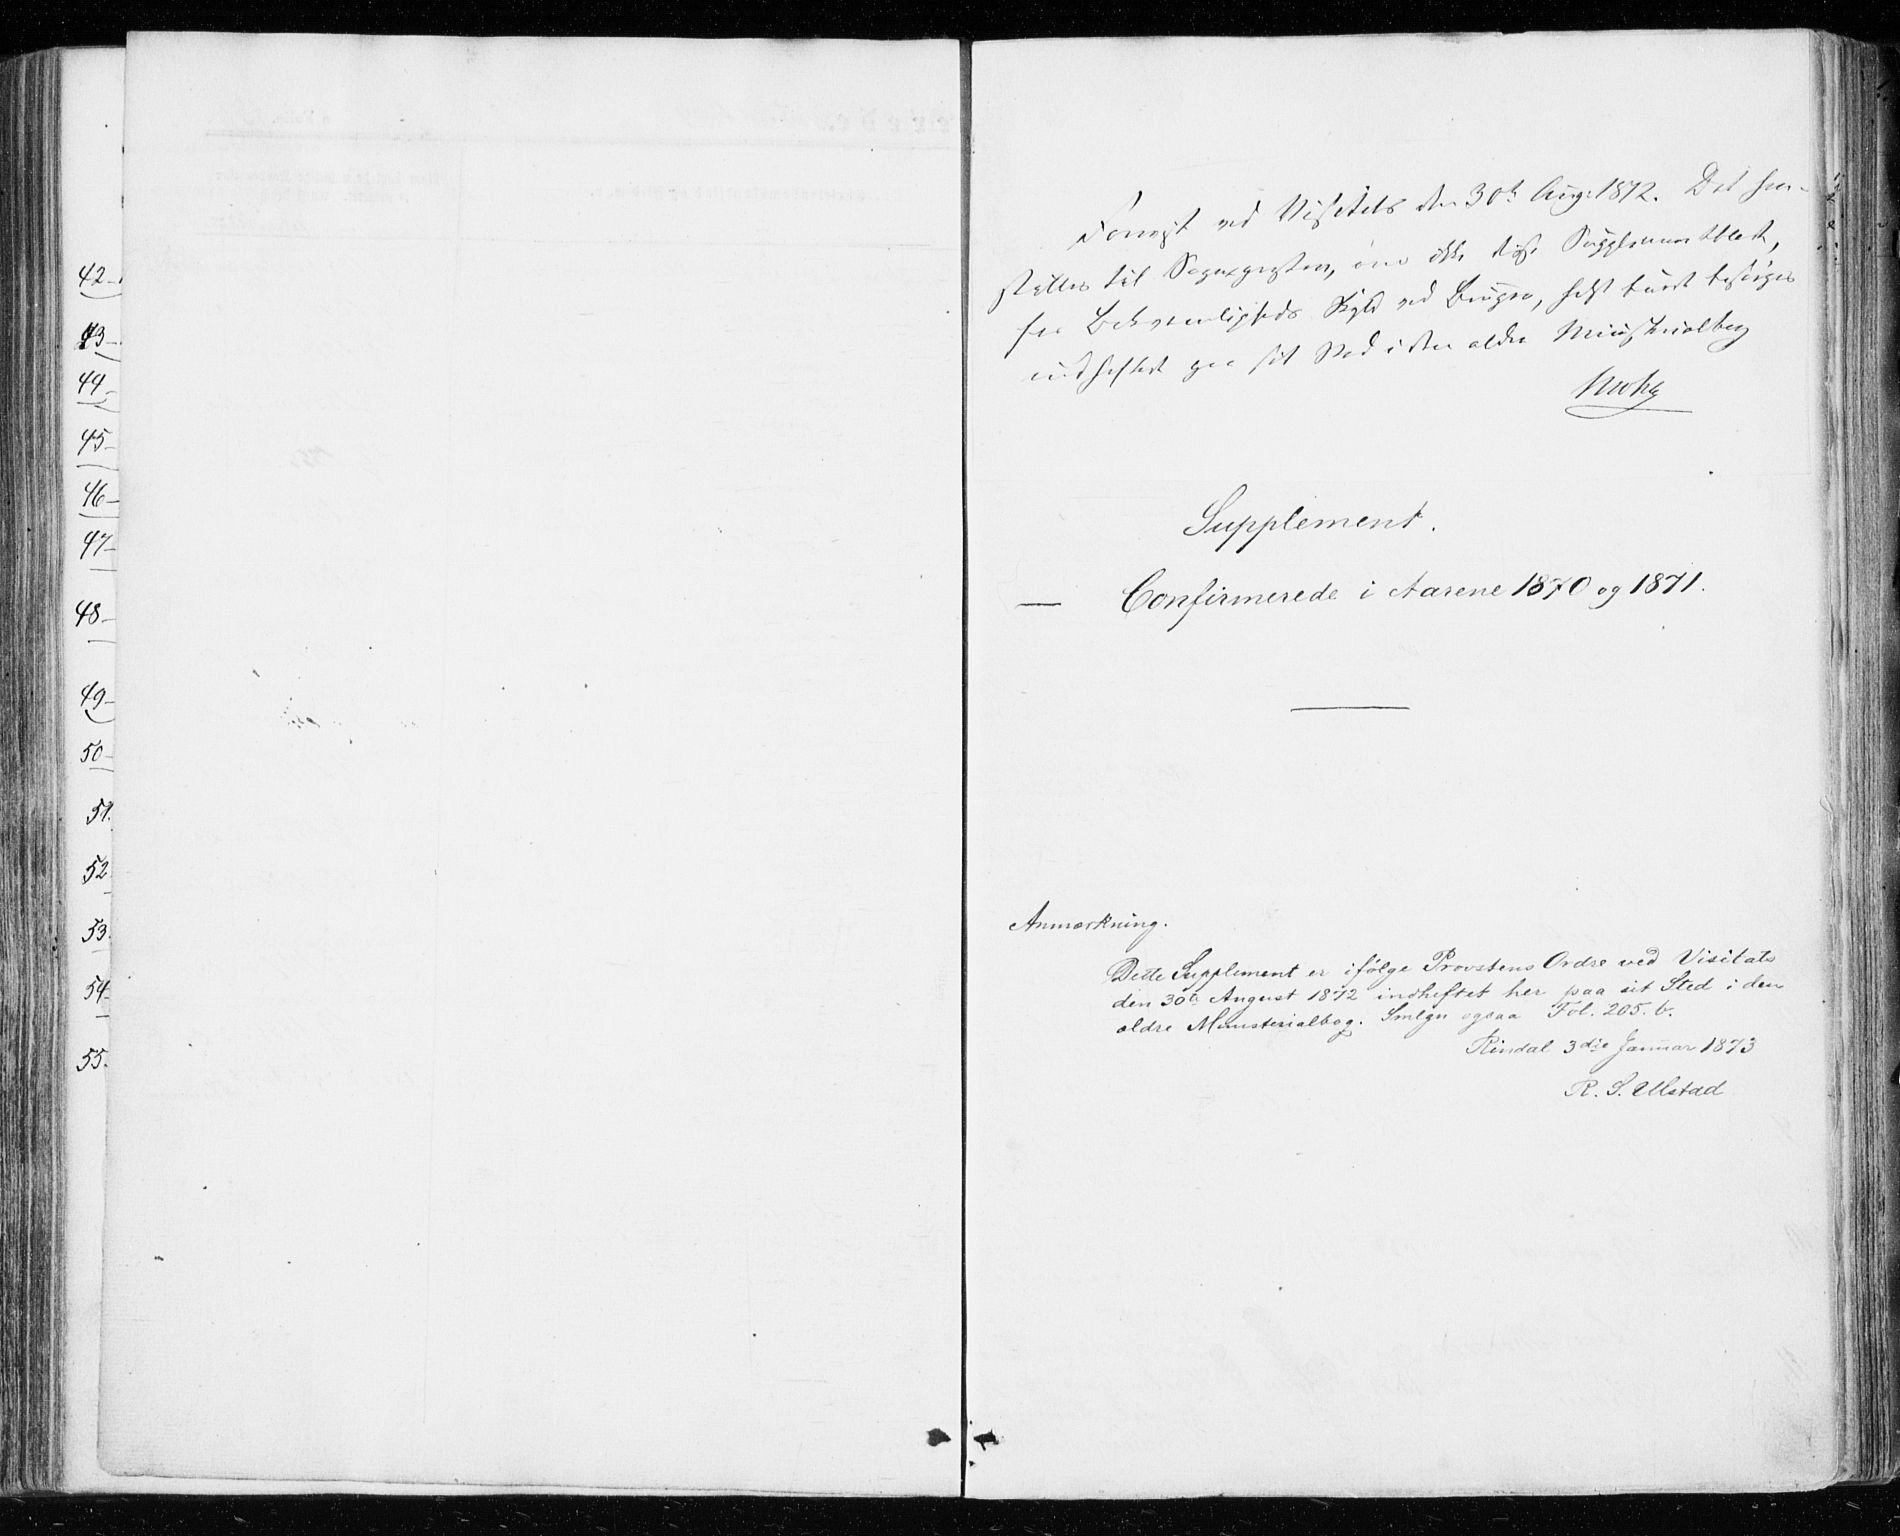 42-
43-
44-
45-
46-
47-
48-
49-
50-
51.
52
53.
54-
55.
Forevist ved Visitats den 30te Aug. 1872. Det hen-
stilles til Sognepresten, om ikke disse Supplementblade,
for Bekvemligheds Skyld ved Brugen, helst burde besørges
indheftet paa sit Sted i den ældre Ministerialbog
Supplement.
— Confirmerede i Aarene 1870 og 1871.
Anmærkning.
Dette Supplement er ifølge Provstens Ordre ved Visitats
den 30te August 1872 indheftet her paa sit Sted i den
ældre Ministerialbog. Smlgn ogsaa Fol. 205. b.
Rindal 3die Januar 1873
R. S. Ulstad